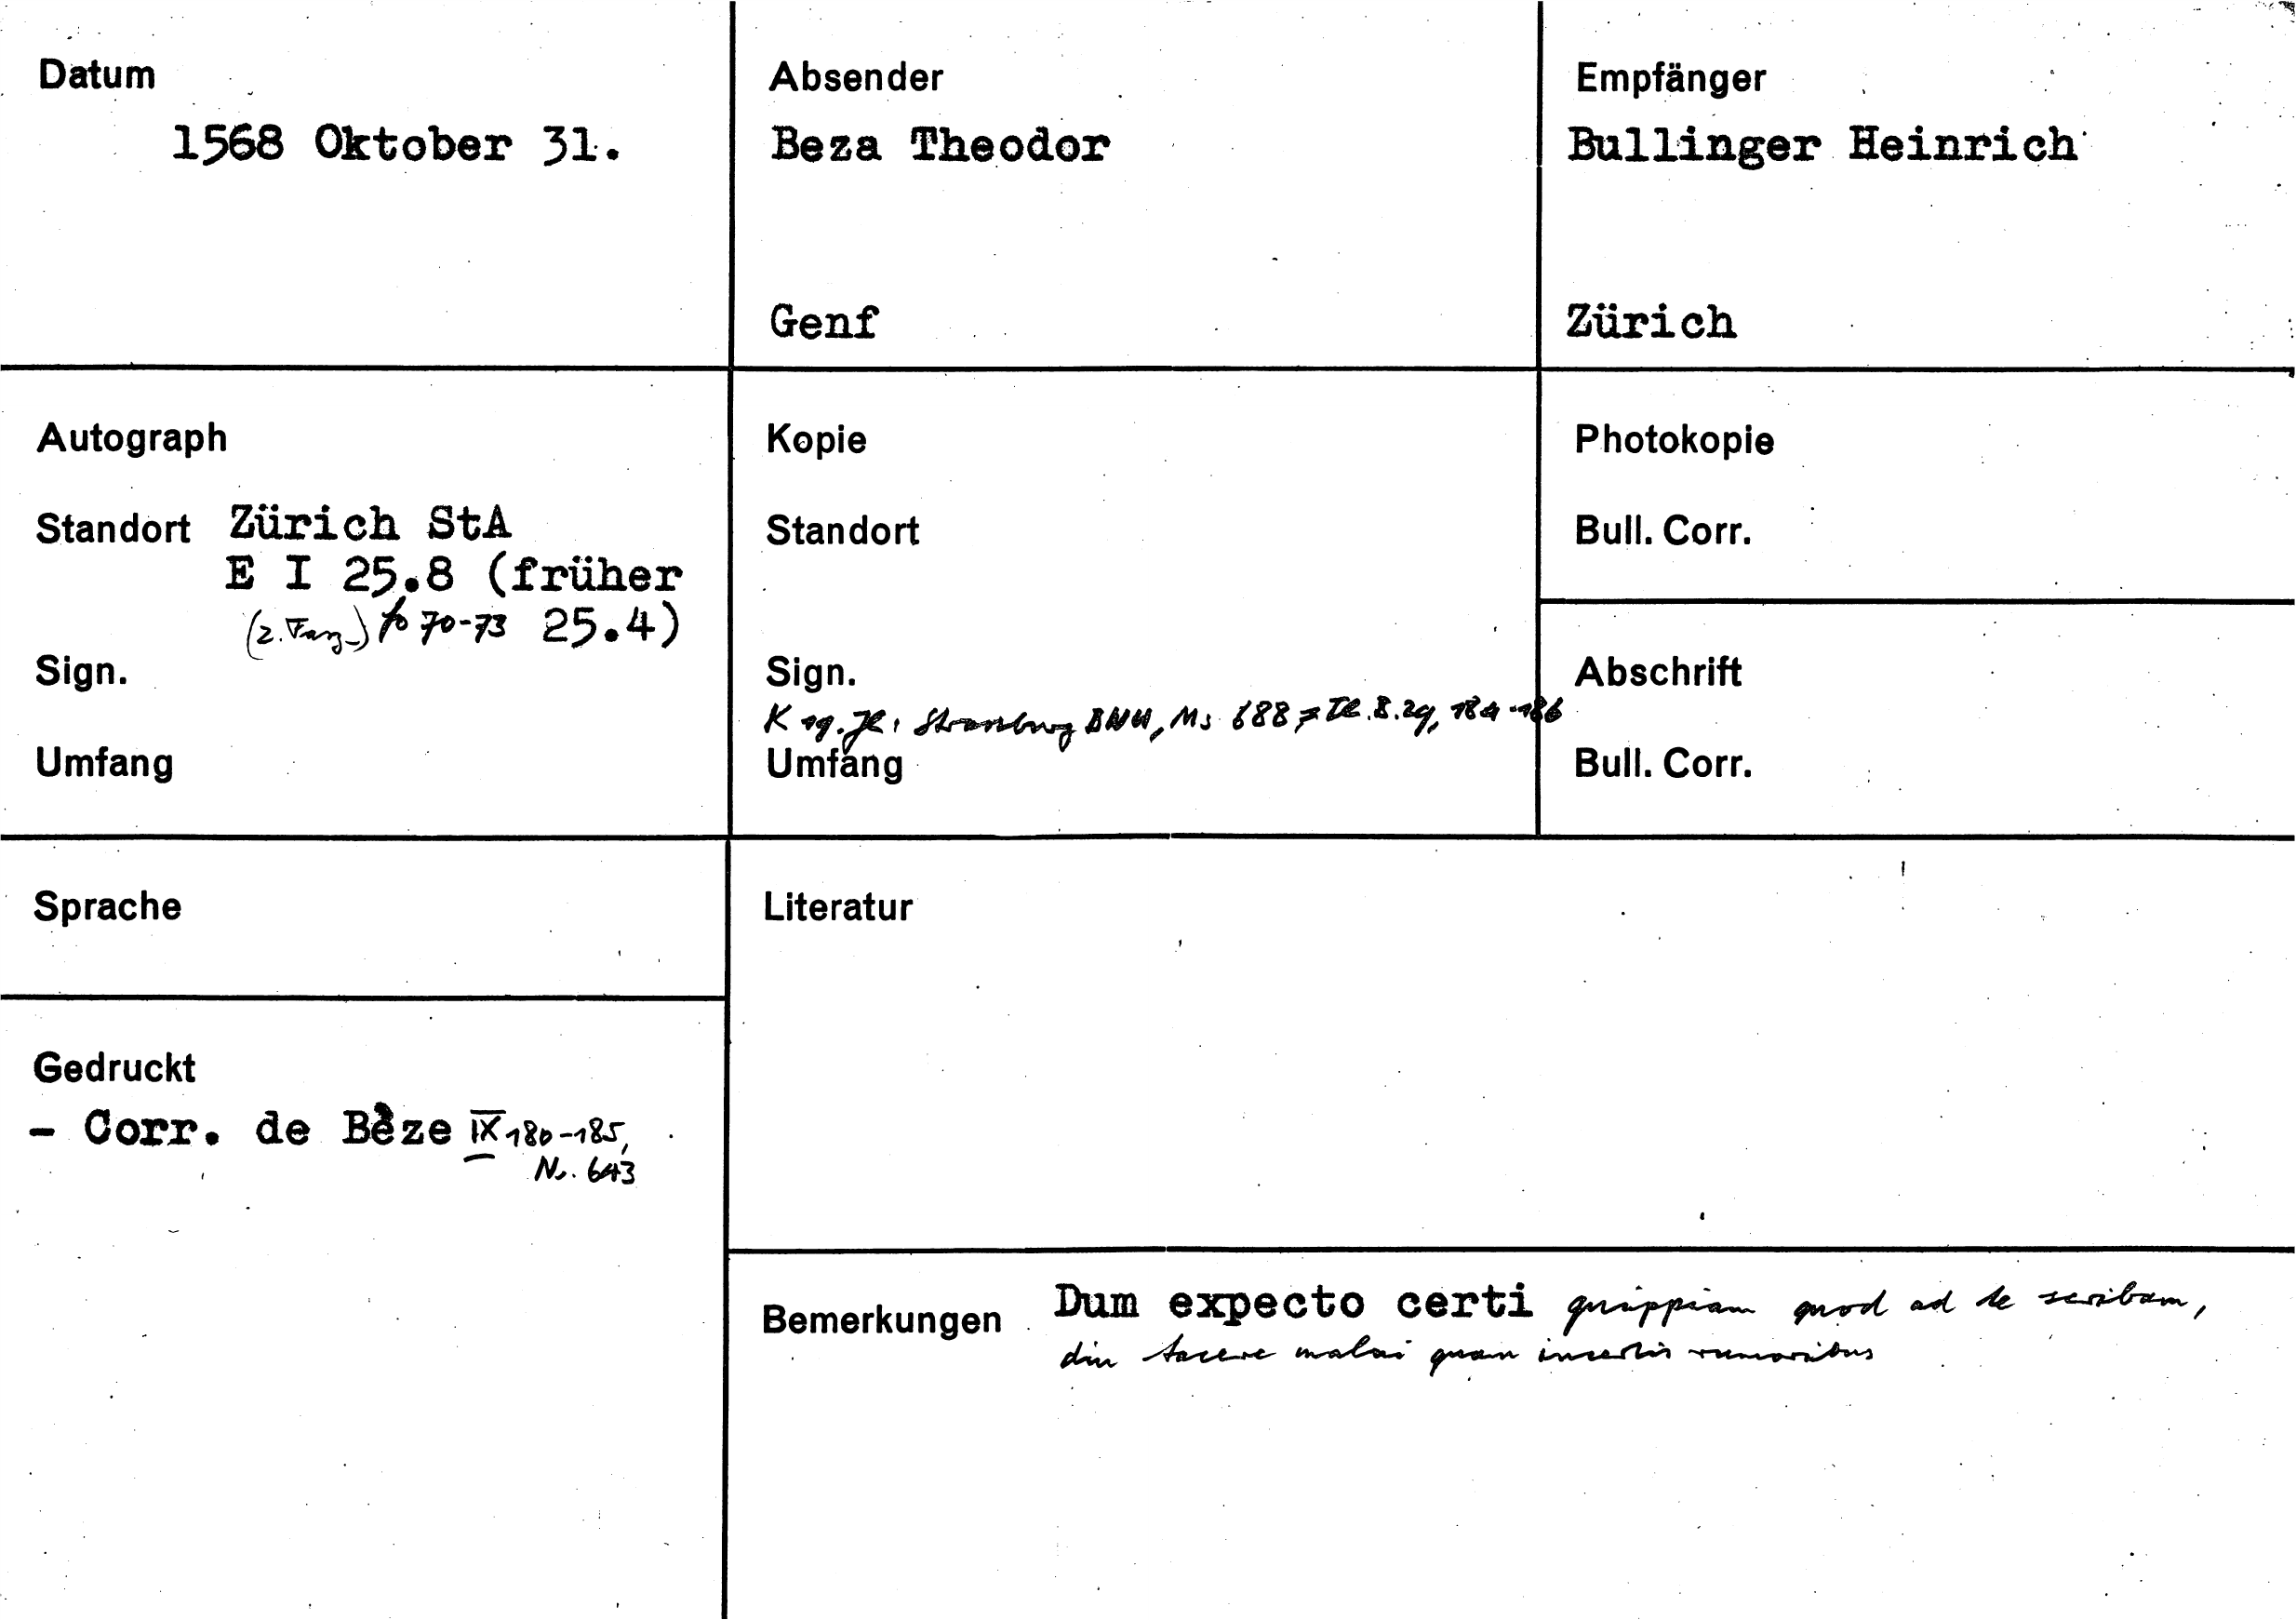 Datum
1568 Oktober 31.
Absender
Beza Theodor
Genf
Empfänger
Bullinger Heinrich
Zürich
Autograph
Standort Zürich StA
E I 25.8 (früher
(2. Faz.) fo 70-73 25.4)
Sign.
Umfang
Kopie
Standort
Sign.
K 19. Jh: Strassburg BNU, Ms 688 = Th. B. 29, 184-186
Umfang
Photokopie
Bull. Corr.
Abschrift
Bull. Corr.
Sprache
Gedruckt
- Corr. de Bèze IX 180-185,
Nr. 643
Literatur
Bemerkungen Dum expecto certi quippiam quod ad te scribam,
diu tacere malui quam incertis rumoribus